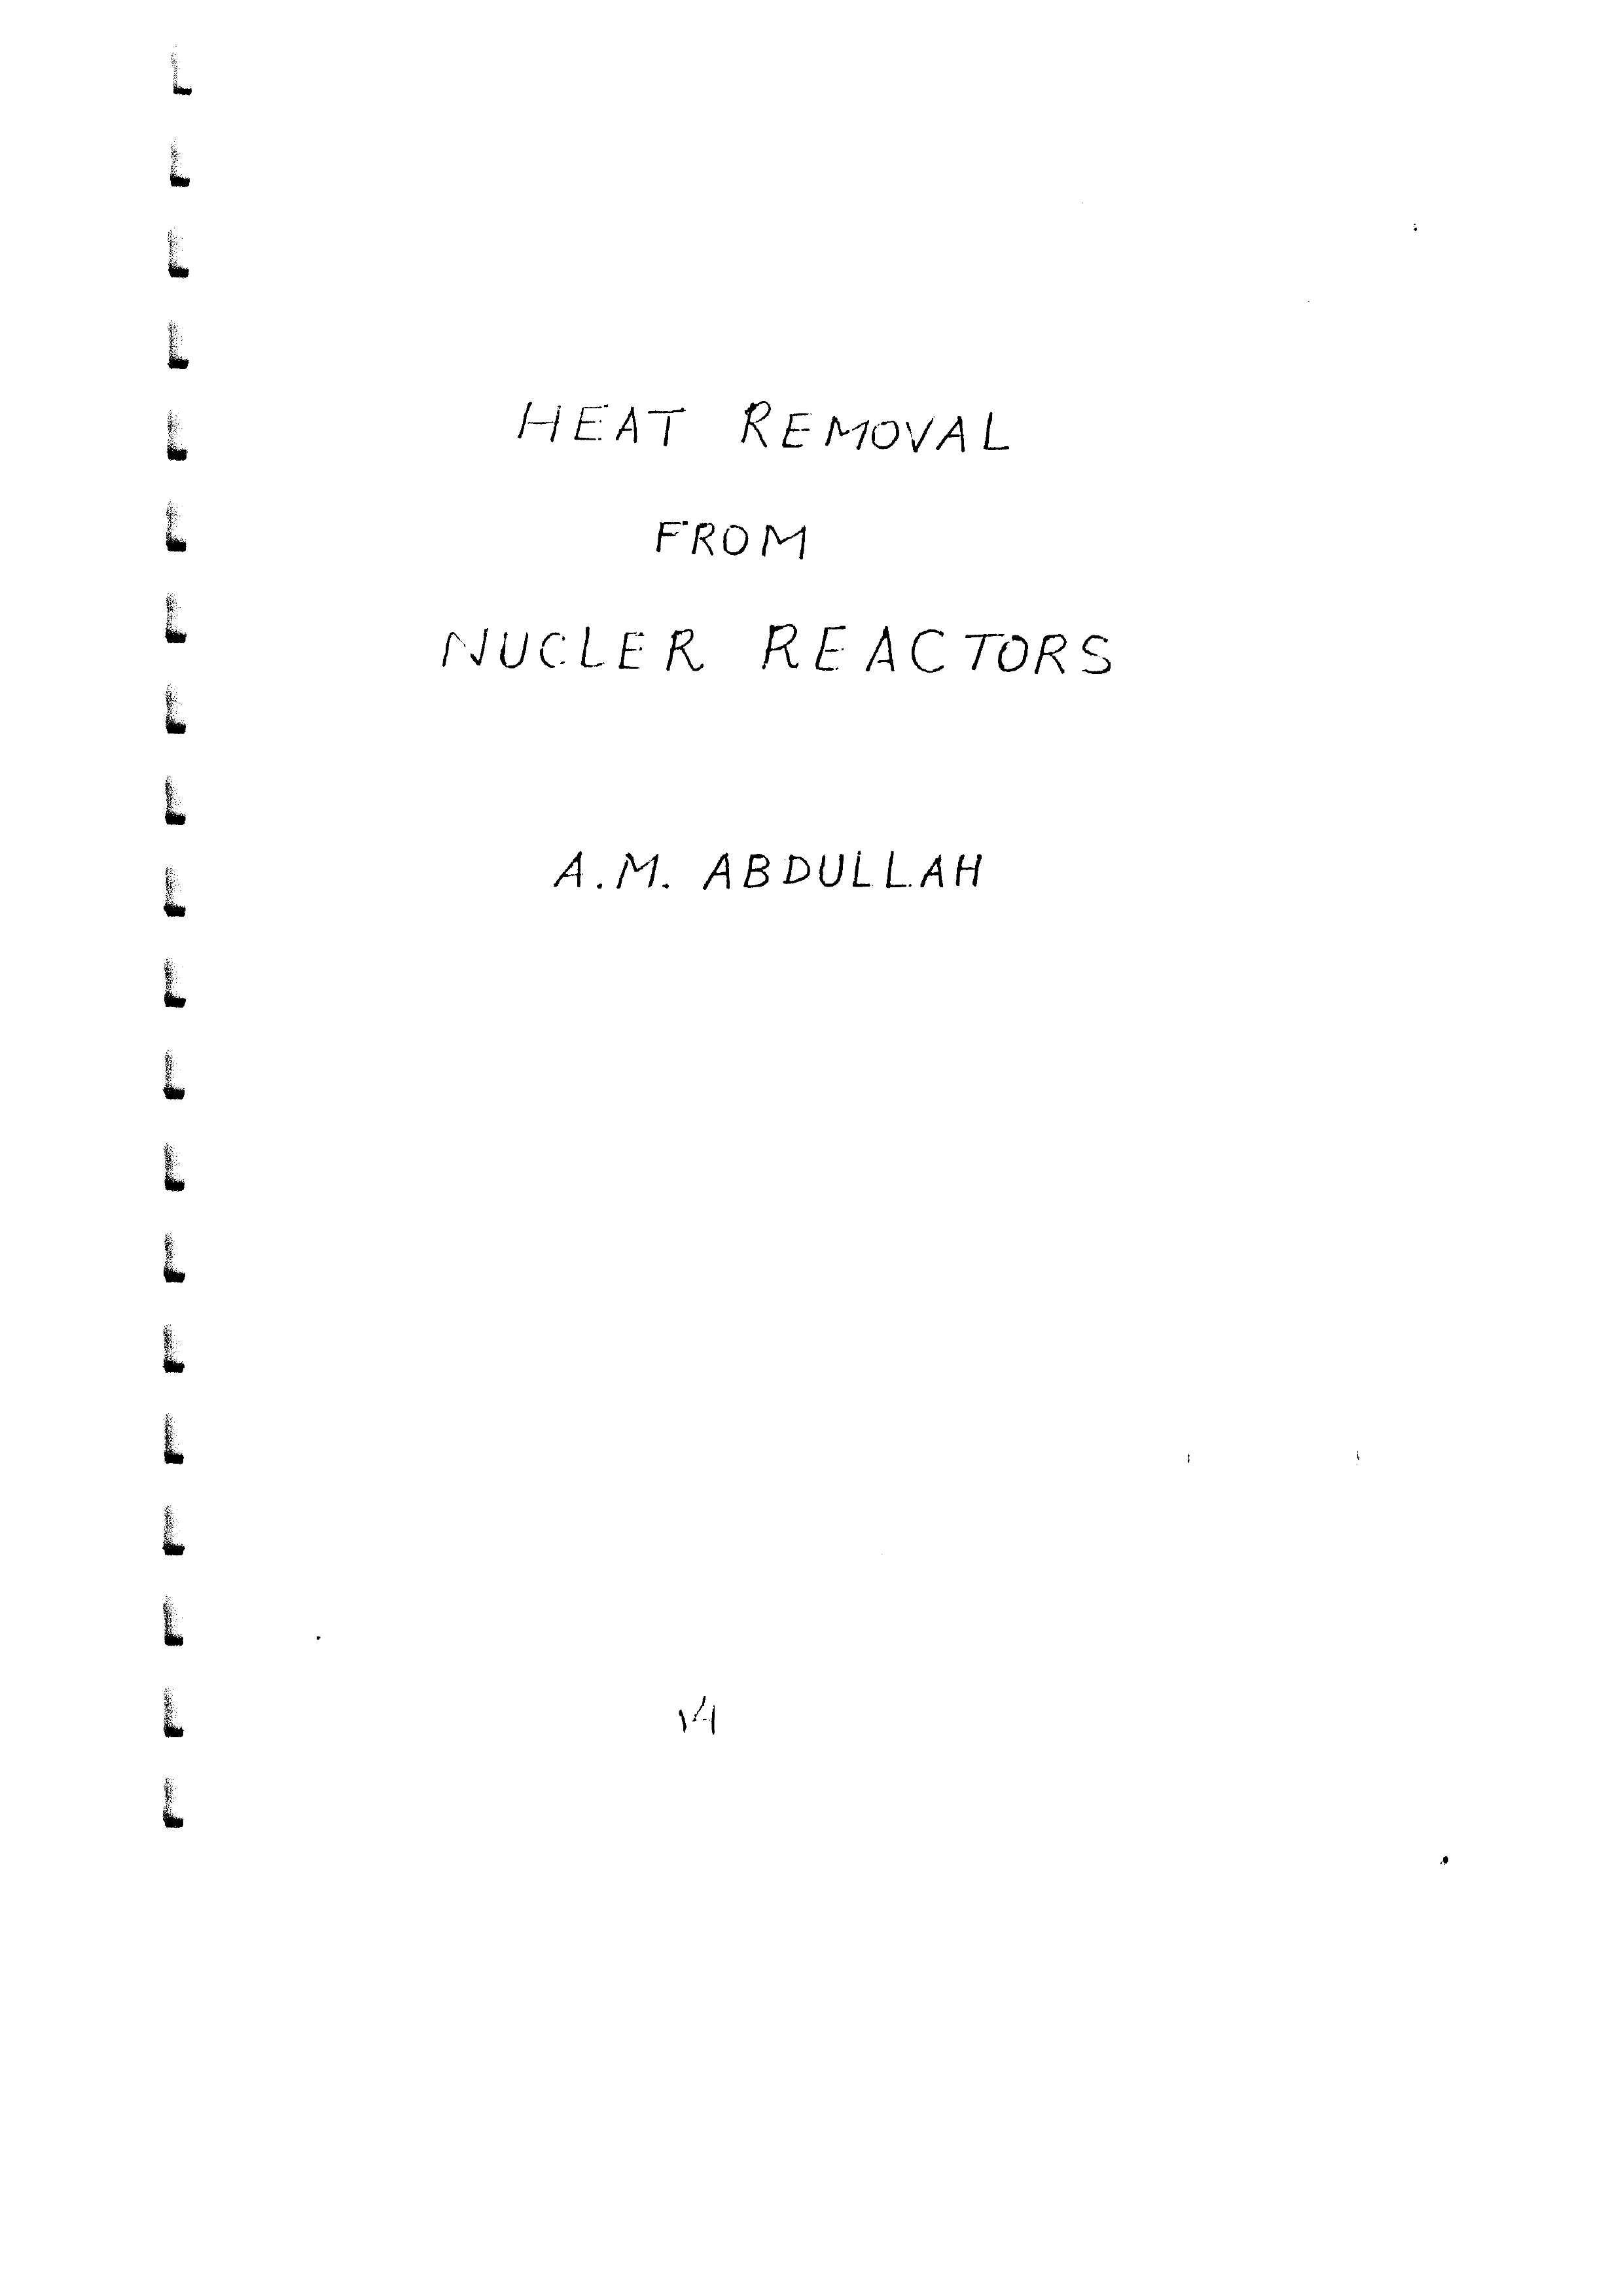 HEAT REMOVAL
FROM
NUCLER REACTORS
A.M. ABDULLAH